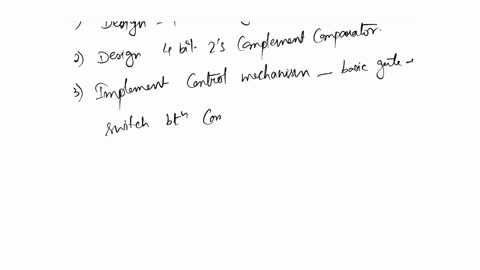 Design
2) Design 4 bit 2's Complement Comparator.
3) Implement Control mechanism - basic gate -
switch btn Con